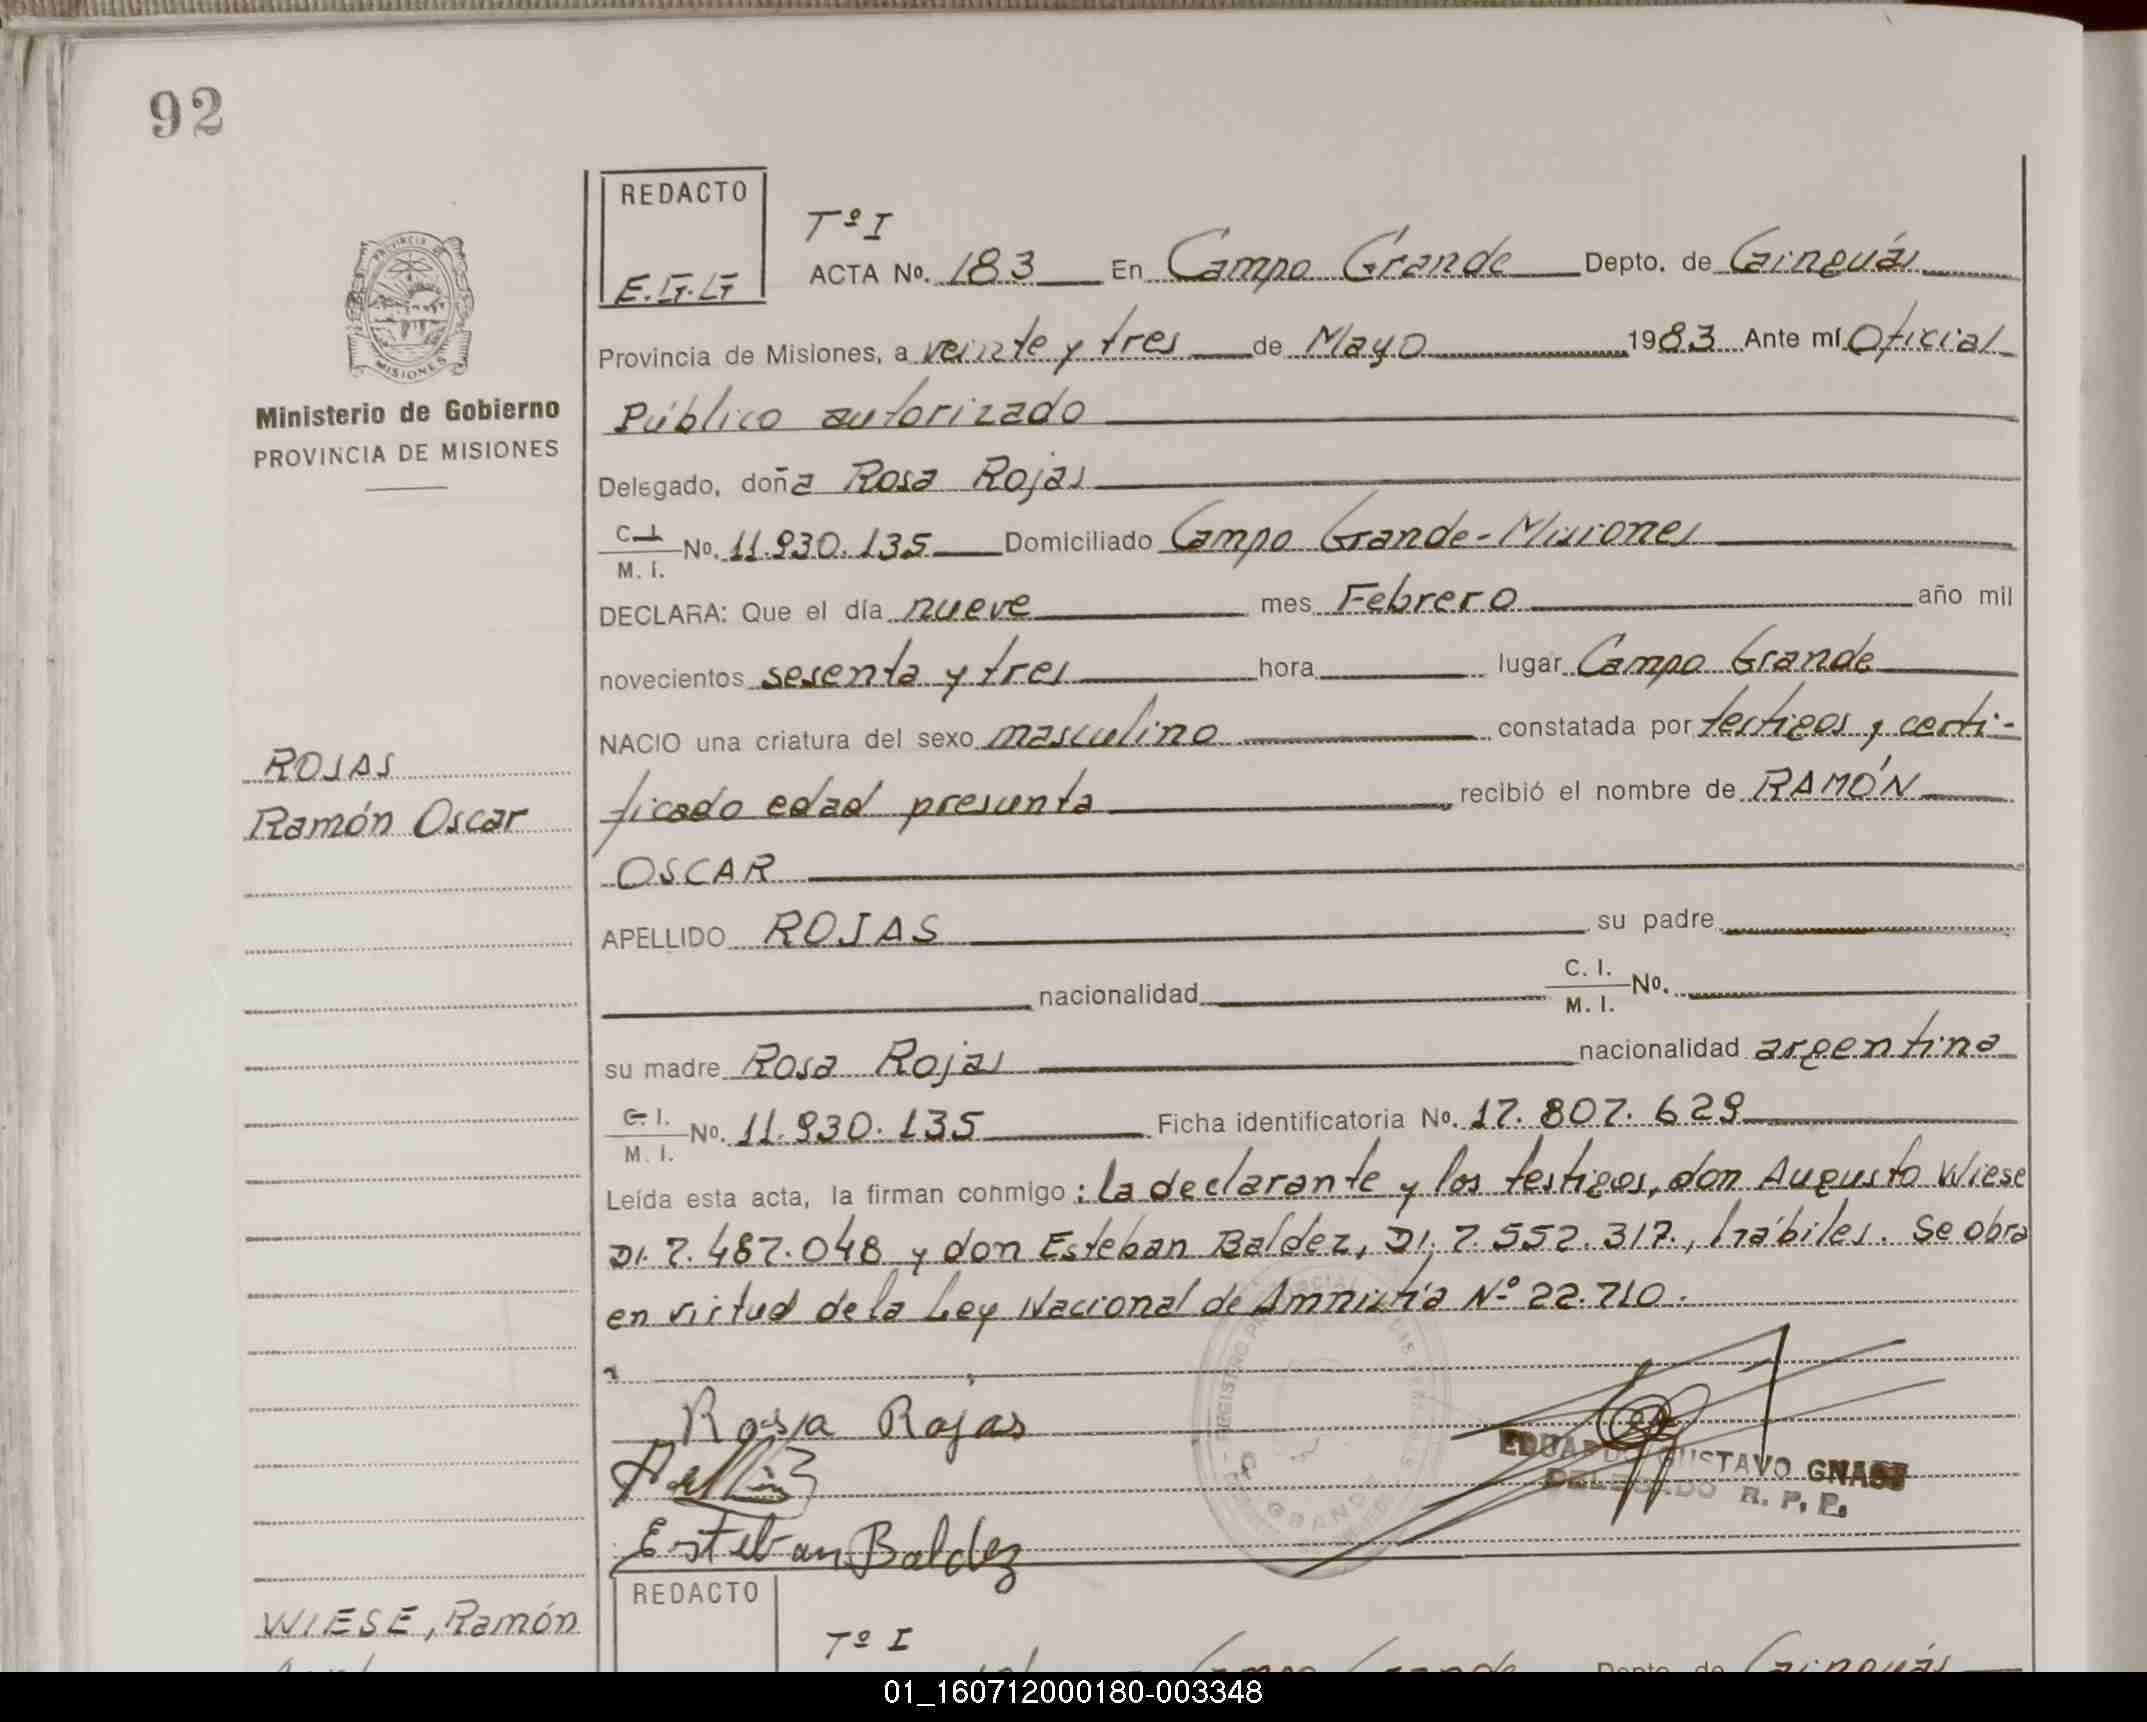 92
REDACTO
E.G.G
Tº I
ACTA No. 183 En Campo Grande Depto. de Cainguás
Provincia de Misiones, a veinte y tres de Mayo 1983 Ante mí Oficial
Público autorizado
Ministerio de Gobierno
PROVINCIA DE MISIONES
Delegado, doña Rosa Rojas
C. I.
M. I. No. 11.930.135 Domiciliado Campo Grande-Misiones
DECLARA: Que el día nueve mes Febrero año mil
novecientos sesenta y tres hora lugar Campo Grande
NACIO una criatura del sexo masculino constatada por testigos y certi-
ROJAS
Ramón Oscar
ficado edad presunta recibió el nombre de RAMÓN
OSCAR
APELLIDO ROJAS su padre
nacionalidad C. I.
M. I. No.
su madre Rosa Rojas nacionalidad argentina
C. I.
M. I. No. 11.930.135 Ficha identificatoria No. 17.807.629
Leída esta acta, la firman conmigo: la declarante y los testigos, don Augusto Wiese
DI. 7.487.048 y don Esteban Baldez, DI. 7.552.317., hábiles. Se obra
en virtud de la Ley Nacional de Amnistía Nº 22.710.
Rosa Rojas
EDUARDO GUSTAVO
DELEGADO R. P. P.
Esteban Baldez
REDACTO
WIESE, Ramón
Tº I
Campo Grande Depto. de Cainguás
01_160712000180-003348